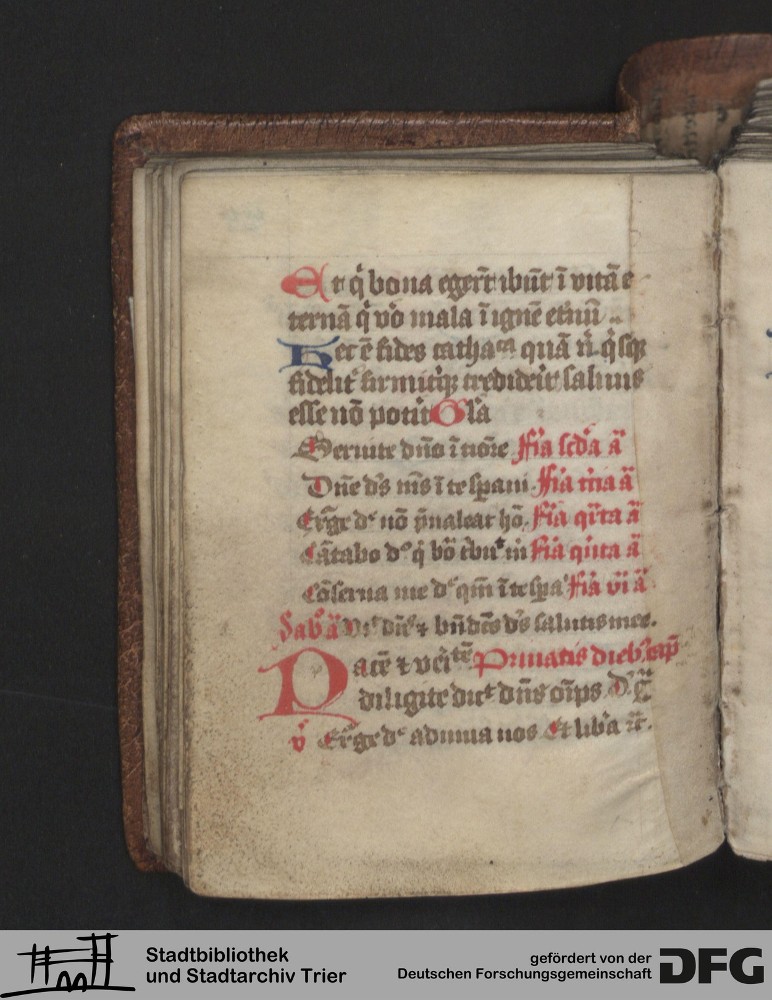 Et q̇ bona egert̄ ibūt ī vitā e
ternā q̇ vo̊ mala ī ignē et̕nū
Hec ē fides catha^ca quā n̄ q̇sq;
fidelit̕ firmit̕q; crediderit saluus
esse nō potit̕ Gl̄a
Seruite dn̄o ī tiōre Fīa scd̕a ā
Dn̄e d̕s m̄s ī te spaui Fīa tīia ā
Exrg̕e d̕ nō p̄ualeat hō Fīa qr̄ta ā
Cātabo d̕o q̇ bō tbu^it m̄ Fīa qn̄ta ā
Cōserua me d̕ qm̄ ī te spa Fīa vi ā
Sab̕ ā d̕ bn̄dc̄s d̕s salutis mee.
Pacē ⁊ vei^tē Priuatis dieb̕ cap̄
diligite dic^t dn̄s oīps D. G̅
v̄ Exrg̕e d̕ adiuua nos Et lib̕a n̄.
Stadtbibliothek
und Stadtarchiv Trier
gefördert von der
Deutschen Forschungsgemeinschaft
DFG